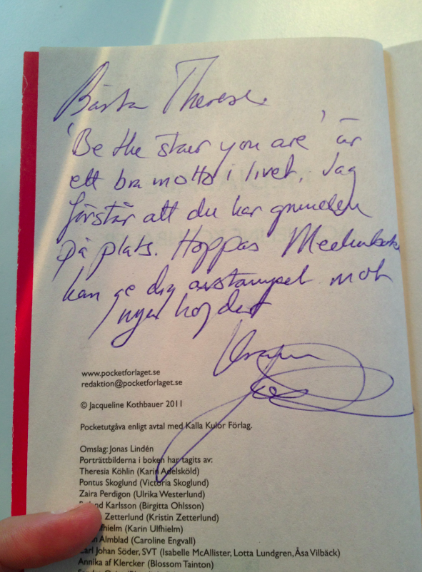 Bästa Therese.
'Be the star you are' är
ett bra motto i livet. Jag
förstår att du har grunden
på plats. Hoppas
kan ge dig avstampet mot
nya höjder!
Kram
www.pocketforlaget.se
redaktion@pocketforlaget.se
© Jacqueline Kothbauer 2011
Pocketutgåva enligt avtal med Kalla Kulor Förlag.
Omslag: Jonas Lindén
Porträttbilderna i boken har tagits av:
Theresia Köhlin (Karin Adelsköld)
Pontus Skoglund (Victoria Skoglund)
Zaira Perdigon (Ulrika Westerlund)
Karlsson (Birgitta Ohlsson)
Zetterlund (Kristin Zetterlund)
(Karin Ulfhielm)
Almblad (Caroline Engvall)
Carl Johan Söder, SVT (Isabelle McAllister, Lotta Lundgren, Åsa Vilbäck)
Annika af Klercker (Blossom Tainton)